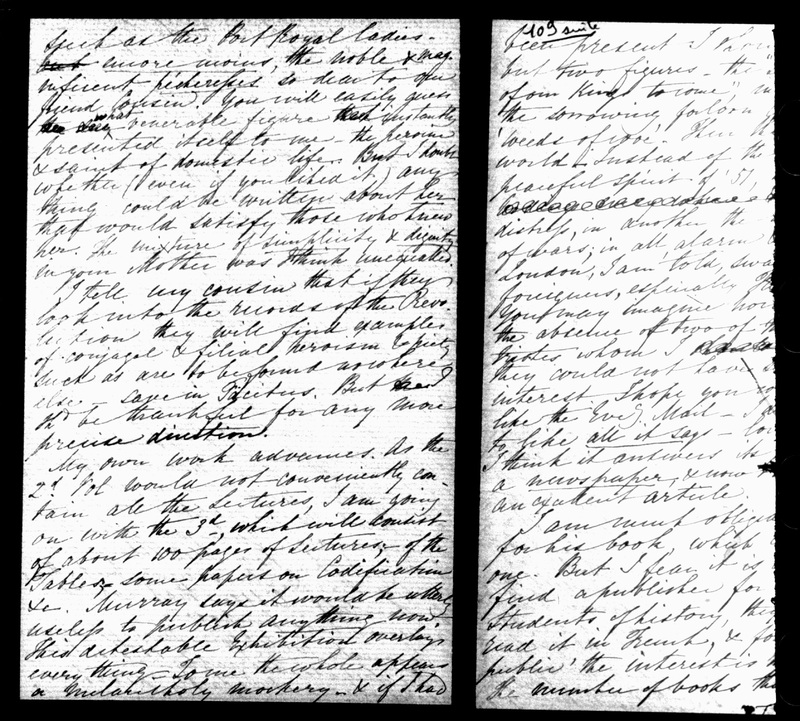 such as the Port Royal ladies -
but encore moins, the noble & mag-
nificent pécheresses so dear to our
friend Cousin. You will easily guess
what venerable figure instantly
presented itself to me - the heroine
& saint of domestic life. But I doubt
whether (even if you liked it) any-
thing could be written about her
that would satisfy those who knew
her. The mixture of simplicity & dignity
in your Mother was I think unequalled.
I tell my cousin that if they
look into the records of the Revo-
lution they will find examples
of conjugal & filial heroism & piety
such as are to be found nowhere
else - save in Tacitus. But
shd be thankful for any more
precise direction.
My own work advances. As the
2d Vol would not conveniently con-
tain all the Lectures, I am going
on with the 3d, which will consist
of about 100 pages of Lectures, of the
Tables, some papers on Codification
&c. Murray says it would be utterly
useless to publish anything now.
This detestable Exhibition overlays
everything - To me the whole appears
a melancholy mockery - & if I had
109 suite
been present I shou
but two figures - the
of our King to come
the sorrowing forlorn
'weeds of woe'. Then th
world - Instead of the
peaceful spirit of '51,
distress, in another the
of wars; in all alarm
London, I am told, swa
foreigners, especially
You may imagine how
the absence of two of
whom I
they could not have
interest. I hope you
like the Eveg Mail - I
to like all it says - 
I think it answers its
a newspaper, & now
an excellent article.
I am much oblige
for his book, which
one. But I fear it is
find a publisher for
Students of history, th
read it in French, & fo
public the interest is
the number of books th